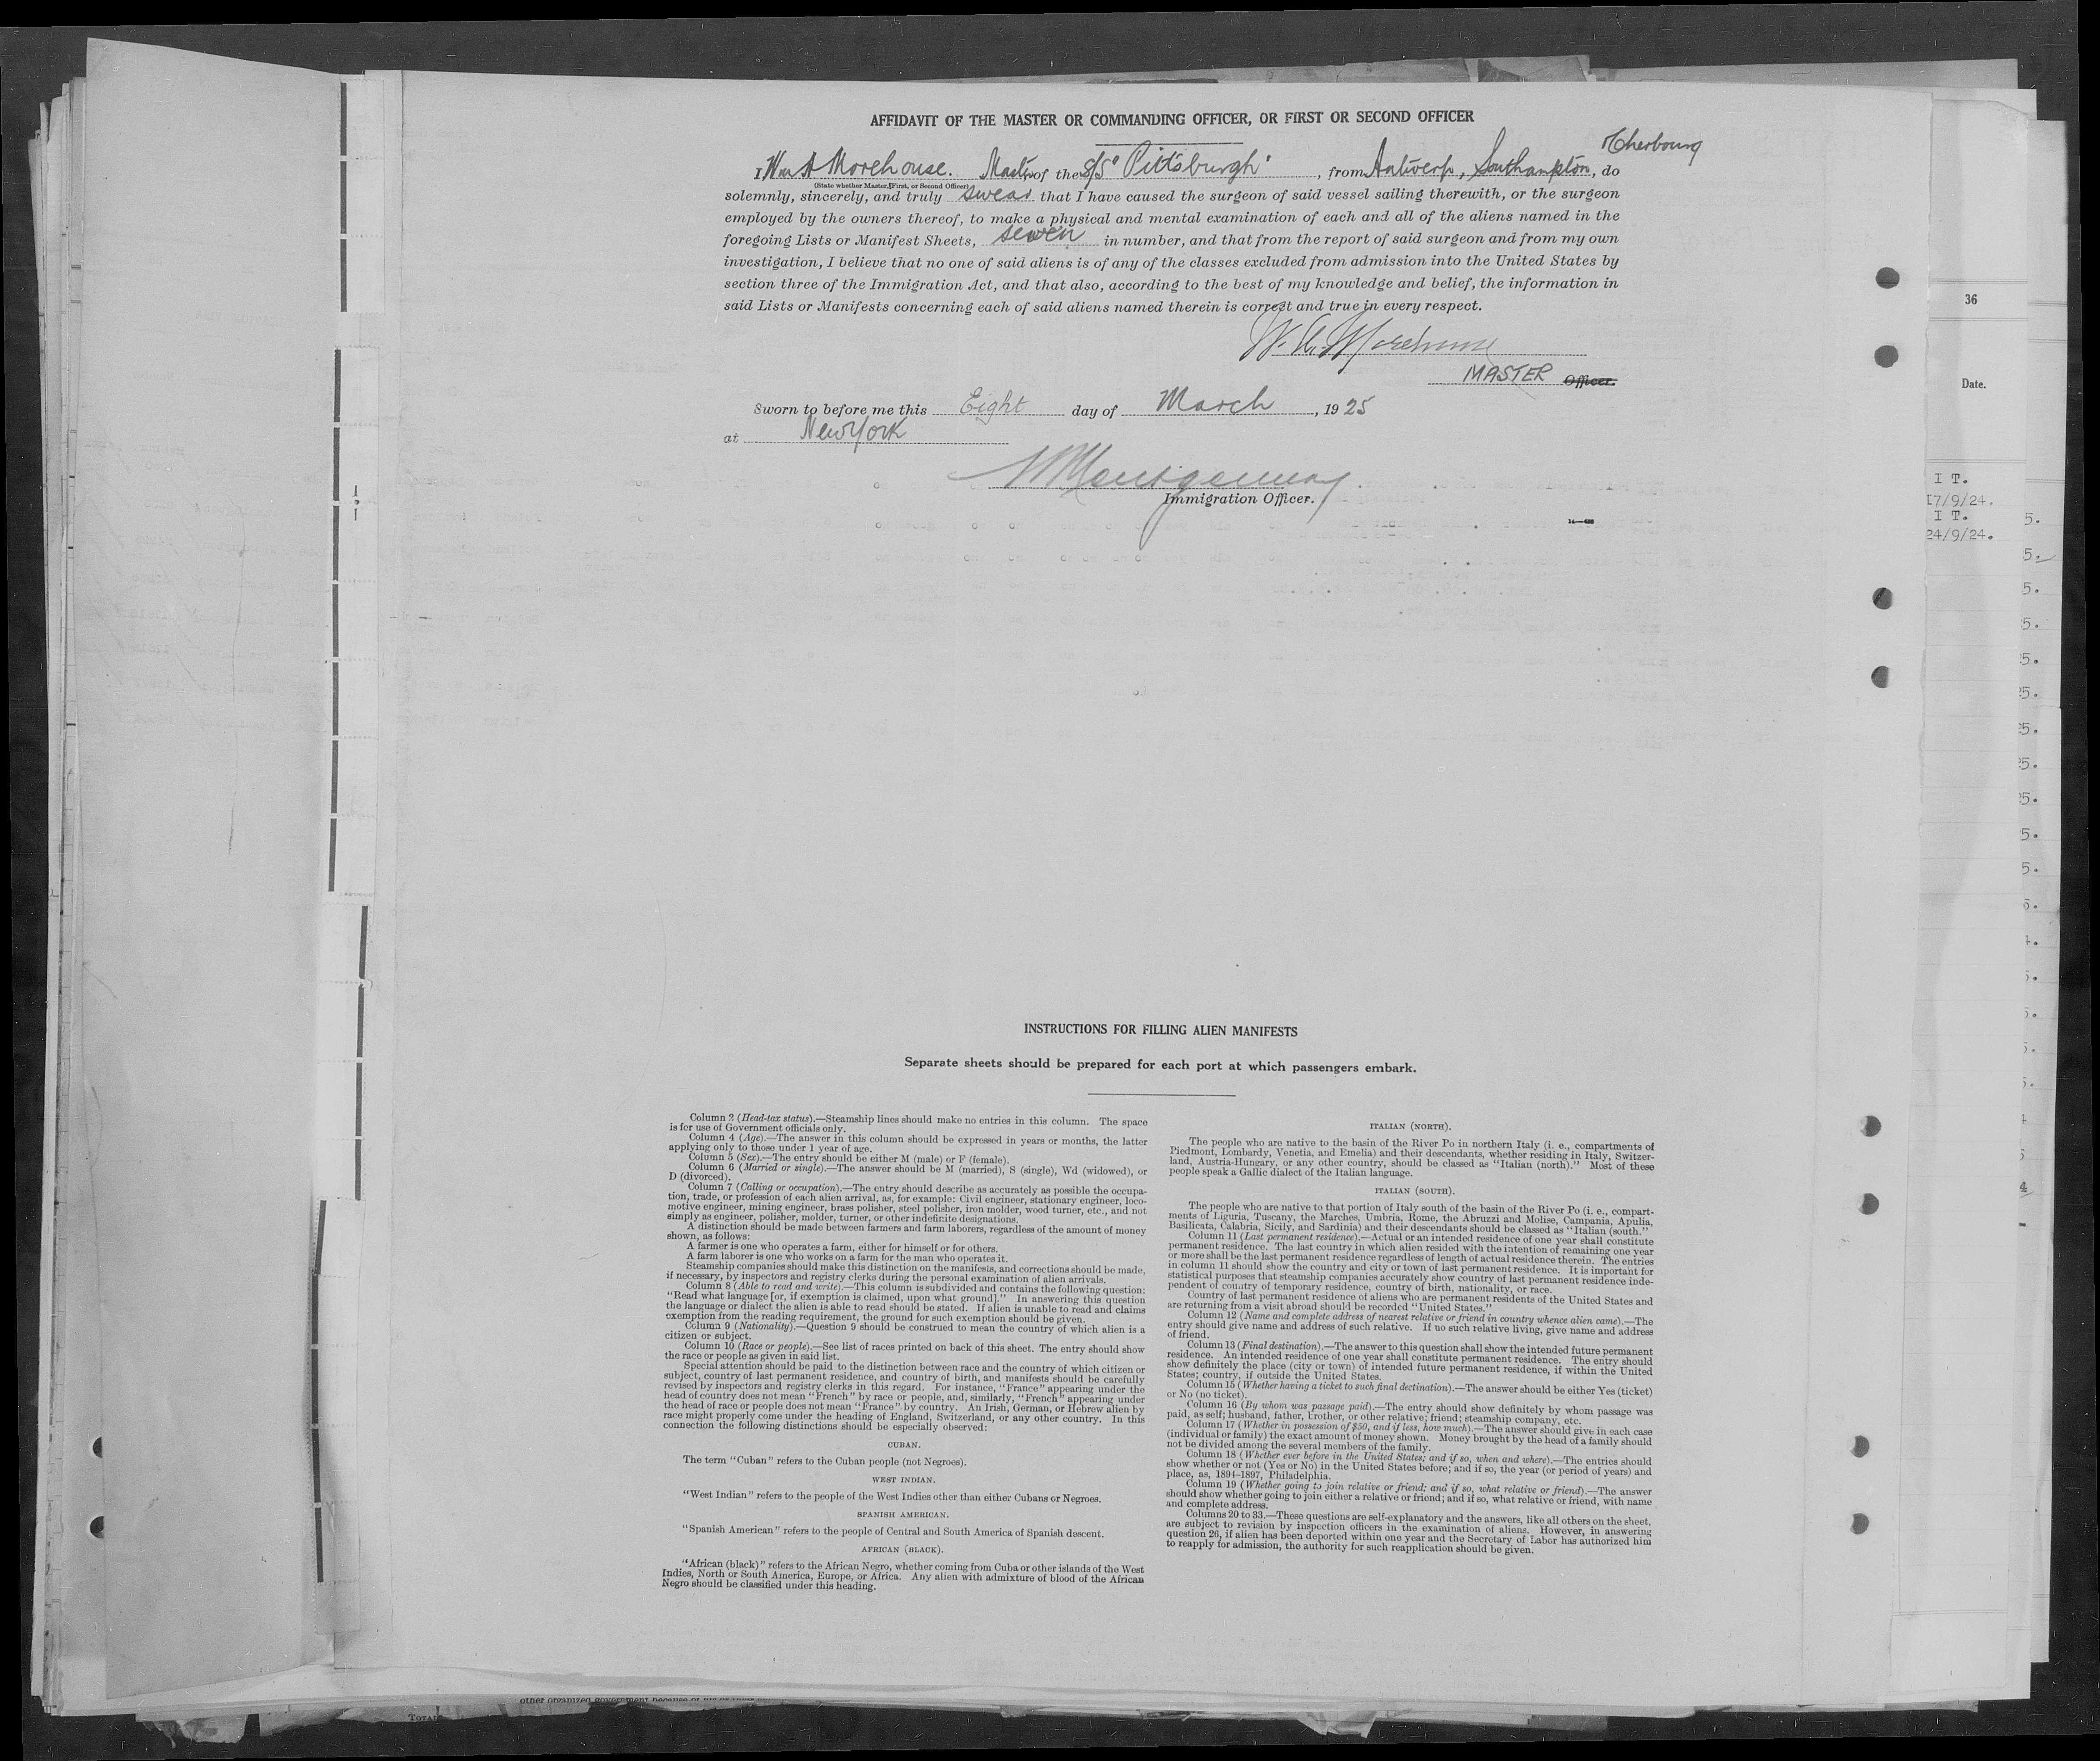 AFFIDAVIT OF THE MASTER OR COMMANDING OFFICER, OR FIRST OR SECOND OFFICER
& Cherbourg
I Wm A Morehouse. Master of the S/S "Pittsburgh", from Antwerp, Southampton, do
(State whether Master, First, or Second Officer)
solemnly, sincerely, and truly swear that I have caused the surgeon of said vessel sailing therewith, or the surgeon
employed by the owners thereof, to make a physical and mental examination of each and all of the aliens named in the
foregoing Lists or Manifest Sheets, seven in number, and that from the report of said surgeon and from my own
investigation, I believe that no one of said aliens is of any of the classes excluded from admission into the United States by
section three of the Immigration Act, and that also, according to the best of my knowledge and belief, the information in
said Lists or Manifests concerning each of said aliens named therein is correct and true in every respect.
W. A. Morehouse
MASTER Officer.
Sworn to before me this Eight day of March, 1925
at New York
Montgomery
Immigration Officer.
INSTRUCTIONS FOR FILLING ALIEN MANIFESTS
Separate sheets should be prepared for each port at which passengers embark.
Column 2 (Head-tax status).—Steamship lines should make no entries in this column. The space
is for use of Government officials only.
Column 4 (Age).—The answer in this column should be expressed in years or months, the latter
applying only to those under 1 year of age.
Column 5 (Sex).—The entry should be either M (male) or F (female).
Column 6 (Married or single).—The answer should be M (married), S (single), Wd (widowed), or
D (divorced).
Column 7 (Calling or occupation).—The entry should describe as accurately as possible the occupa-
tion, trade, or profession of each alien arrival, as, for example: Civil engineer, stationary engineer, loco-
motive engineer, mining engineer, brass polisher, steel polisher, iron molder, wood turner, etc., and not
simply as engineer, polisher, molder, turner, or other indefinite designations.
A distinction should be made between farmers and farm laborers, regardless of the amount of money
shown, as follows:
A farmer is one who operates a farm, either for himself or for others.
A farm laborer is one who works on a farm for the man who operates it.
Steamship companies should make this distinction on the manifests, and corrections should be made,
if necessary, by inspectors and registry clerks during the personal examination of alien arrivals.
Column 8 (Able to read and write).—This column is subdivided and contains the following question:
"Read what language [or, if exemption is claimed, upon what ground]." In answering this question
the language or dialect the alien is able to read should be stated. If alien is unable to read and claims
exemption from the reading requirement, the ground for such exemption should be given.
Column 9 (Nationality).—Question 9 should be construed to mean the country of which alien is a
citizen or subject.
Column 10 (Race or people).—See list of races printed on back of this sheet. The entry should show
the race or people as given in said list.
Special attention should be paid to the distinction between race and the country of which citizen or
subject, country of last permanent residence, and country of birth, and manifests should be carefully
revised by inspectors and registry clerks in this regard. For instance, "France" appearing under the
head of country does not mean "French" by race or people, and, similarly, "French" appearing under
the head of race or people does not mean "France" by country. An Irish, German, or Hebrew alien by
race might properly come under the heading of England, Switzerland, or any other country. In this
connection the following distinctions should be especially observed:
CUBAN.
The term "Cuban" refers to the Cuban people (not Negroes).
WEST INDIAN.
"West Indian" refers to the people of the West Indies other than either Cubans or Negroes.
SPANISH AMERICAN.
"Spanish American" refers to the people of Central and South America of Spanish descent.
AFRICAN (BLACK).
"African (black)" refers to the African Negro, whether coming from Cuba or other islands of the West
Indies, North or South America, Europe, or Africa. Any alien with admixture of blood of the African
Negro should be classified under this heading.
ITALIAN (NORTH).
The people who are native to the basin of the River Po in northern Italy (i. e., compartments of
Piedmont, Lombardy, Venetia, and Emelia) and their descendants, whether residing in Italy, Switzer-
land, Austria-Hungary, or any other country, should be classed as "Italian (north)." Most of these
people speak a Gallic dialect of the Italian language.
ITALIAN (SOUTH).
The people who are native to that portion of Italy south of the basin of the River Po (i. e., compart-
ments of Liguria, Tuscany, the Marches, Umbria, Rome, the Abruzzi and Molise, Campania, Apulia,
Basilicata, Calabria, Sicily, and Sardinia) and their descendants should be classed as "Italian (south)."
Column 11 (Last permanent residence).—Actual or an intended residence of one year shall constitute
permanent residence. The last country in which alien resided with the intention of remaining one year
or more shall be the last permanent residence regardless of length of actual residence therein. The entries
in column 11 should show the country and city or town of last permanent residence. It is important for
statistical purposes that steamship companies accurately show country of last permanent residence inde-
pendent of country of temporary residence, country of birth, nationality, or race.
Country of last permanent residence of aliens who are permanent residents of the United States and
are returning from a visit abroad should be recorded "United States."
Column 12 (Name and complete address of nearest relative or friend in country whence alien came).—The
entry should give name and address of such relative. If no such relative living, give name and address
of friend.
Column 13 (Final destination).—The answer to this question shall show the intended future permanent
residence. An intended residence of one year shall constitute permanent residence. The entry should
show definitely the place (city or town) of intended future permanent residence, if within the United
States; country, if outside the United States.
Column 15 (Whether having a ticket to such final destination).—The answer should be either Yes (ticket)
or No (no ticket).
Column 16 (By whom was passage paid).—The entry should show definitely by whom passage was
paid, as self; husband, father, brother, or other relative; friend; steamship company, etc.
Column 17 (Whether in possession of $50, and if less, how much).—The answer should give in each case
(individual or family) the exact amount of money shown. Money brought by the head of a family should
not be divided among the several members of the family.
Column 18 (Whether ever before in the United States; and if so, when and where).—The entries should
show whether or not (Yes or No) in the United States before; and if so, the year (or period of years) and
place, as, 1894-1897, Philadelphia.
Column 19 (Whether going to join relative or friend; and if so, what relative or friend).—The answer
should show whether going to join either a relative or friend; and if so, what relative or friend, with name
and complete address.
Columns 20 to 33.—These questions are self-explanatory and the answers, like all others on the sheet,
are subject to revision by inspection officers in the examination of aliens. However, in answering
question 26, if alien has been deported within one year and the Secretary of Labor has authorized him
to reapply for admission, the authority for such reapplication should be given.
36
Date.
I T.
17/9/24.
I T.
24/9/24.